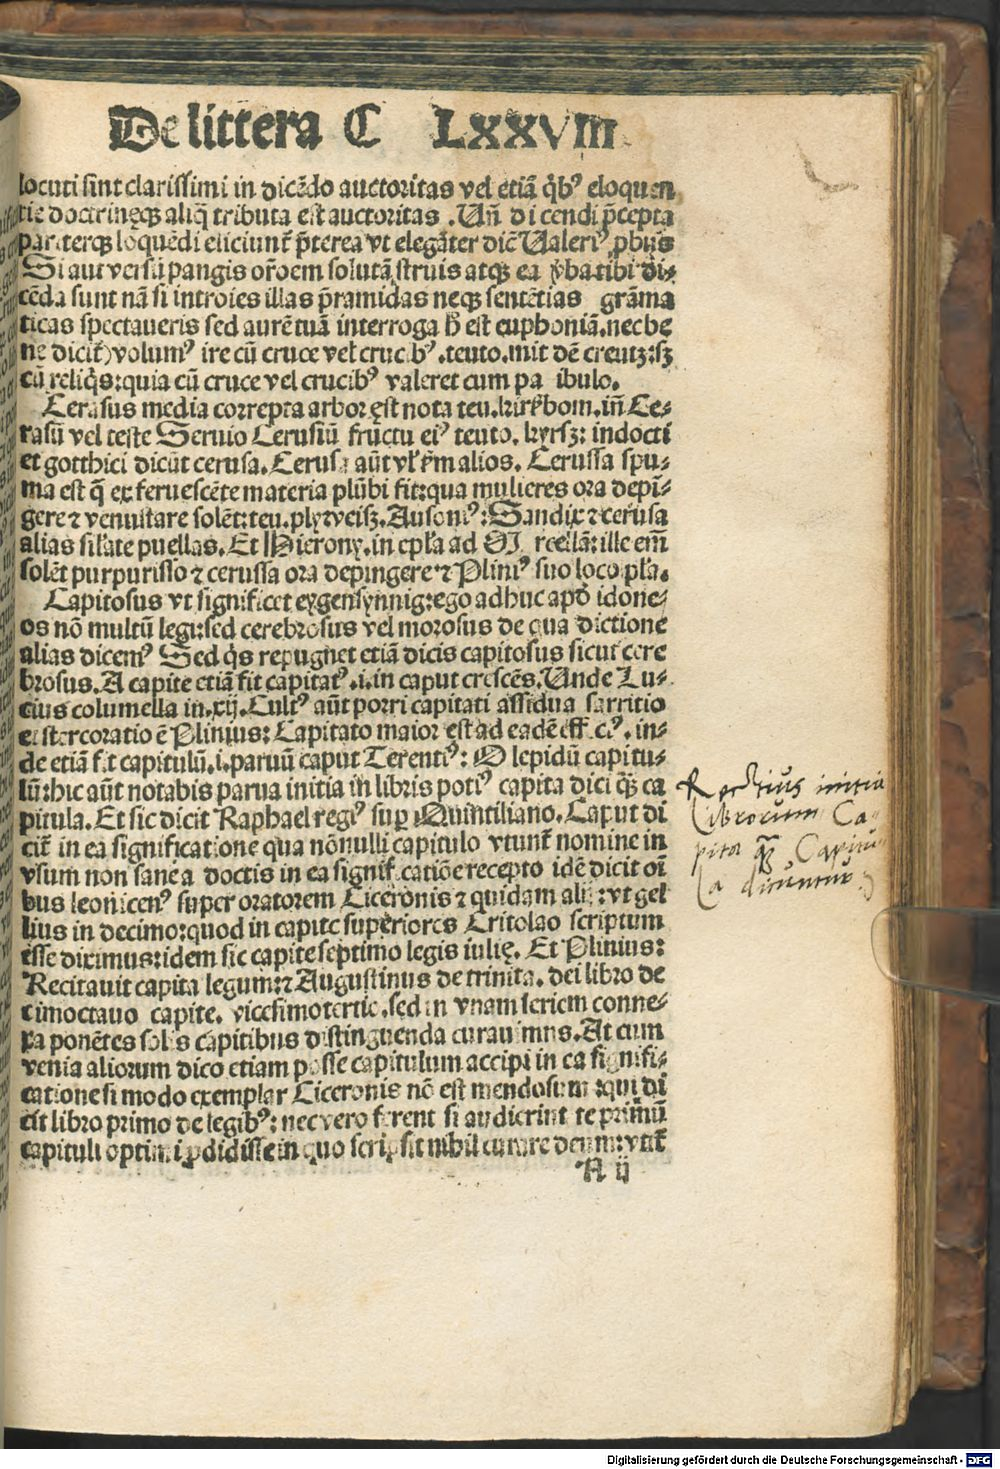 De littera C LXXVIII
locuti sint clarissimi in dicēdo auctoritas vel etiā q̄bꝰ eloquen
tie doctrineqꝫ aliq̄ tributa est auctoritas . Un̄ dicendi p̄cepta
pariterqꝫ loquēdi eliciunt᷑ p̄terea vt elegāter dic̄ Ualeriꝰ pbꝰ
Si aut versū pangis or̄oem solutā struis atqꝫ ea ꝟba tibi di⸗
cēda sunt nā si introies illas pramidas neqꝫ sentētias grāma
ticas spectaueris sed aurē tuā interroga h̄ est euphoniā.nec be
ne dicit᷑)volumꝰ ire cū cruce vel crucibꝰ .teuto.mit dē creutz:sꝫ
cū reliq̄s:quia cū cruce vel crucibꝰ valeret cum pa ibulo.
Cerasus media correpta arbor est nota teu.kirßbom.in̄ Ce⸗
rasū vel teste Seruio Cerusiū fructu eiꝰ teuto. kyrsz: indocti
et gotthici dicūt cerusa. Cerusa aūt vl' ẜm alios. Cerussa spu⸗
ma est q̄ ex feruescēte materia plūbi fit:qua mulieres ora depi⸗
gere ⁊ venustare solēt:teu.plyweisz.Ausoniꝰ:Sandix ⁊ cerusa
alias sil'ate puellas. Et Hierony.in epl'a ad M rcellā:ille em̄
solēt purpurisso ⁊ cerussa ora depingere ⁊ Pliniꝰ suo loco pl'a.
Capitosus vt significet eygensynnig:ego adhuc apd̓ idone⸗
os nō multū legi:sed cerebrosus vel morosus de qua dictione
alias dicemꝰ Sed q̄s repugnet etiā dicis capitosus sicut cere
brosus. A capite etiā fit capitatꝰ .i.in caput crescēs. Unde Lu⸗
cius columella in.xij. Cultꝰ aūt porri capitati assidua sarritio
et stercoratio ē Plinius: Capitato maior est ad eadē eff.ctꝰ . in⸗
de etiā fit capitulū.i.paruū caput Terentiꝰ: O lepidū capitu⸗
lū:hic aūt notabis parua initia in libris potiꝰ capita dici q̄ꝫ ca
pitula. Et sic dicit Raphael regiꝰ sup Quintiliano. Caput di
cit᷑ in ea significatione qua nōnulli capitulo vtunt᷑ nomine in
vsum non sane a doctis in ea signif.catiōe recepto idē dicit oī
bus leonicenꝰ super oratorem Ciceronis ⁊ quidam alij: vt gel
lius in decimo:quod in capite superiores Critolao scriptum
esse diximus:idem sic capite septimo legis iulię. Et Plinius:
Recitauit capita legum:⁊ Augustinus de trinita. dei libro de
cimoctauo capite. vicesimotertio .sed in vnam seriem conne⸗
xa ponētes solis capitibus distinguenda curauimus. At cum
venia aliorum dico etiam posse capitulum accipi in ea signifi⸗
catione si modo exemplar Ciceronis nō est mendosum :qui di
cit libro primo de legibꝰ: nec vero ferent si audierint te primū
capituli optimi ꝑdidisse in quo scripsit nihil curare deum:vtit᷑
A ij
Rectius initia
librorum Ca-
pita q̄ꝫ Capitu-
la dicuntur.
Digitalisierung gefördert durch die Deutsche Forschungsgemeinschaft - DFG